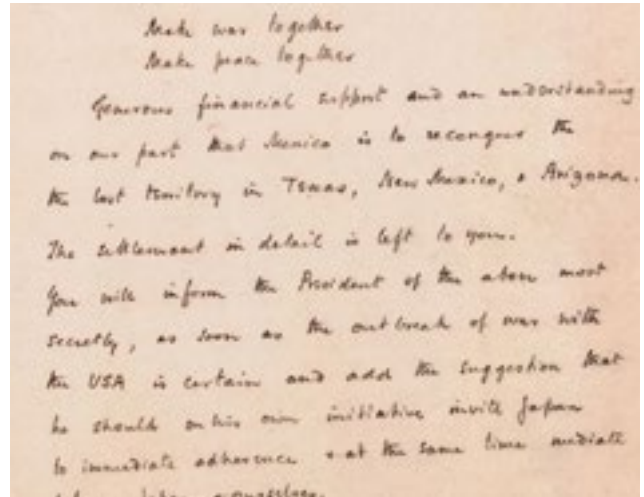 Make war together
Make peace together
Generous financial support and an understanding
on our part that Mexico is to reconquer the
the lost territory in Texas, New Mexico, & Arizona.
The settlement in detail is left to you.
You will inform the President of the above most
secretly, as soon as the outbreak of war with
the USA is certain and add the suggestion that
he should on his own initiative invite Japan
to immediate adherence & at the same time mediate
between Japan & ourselves.